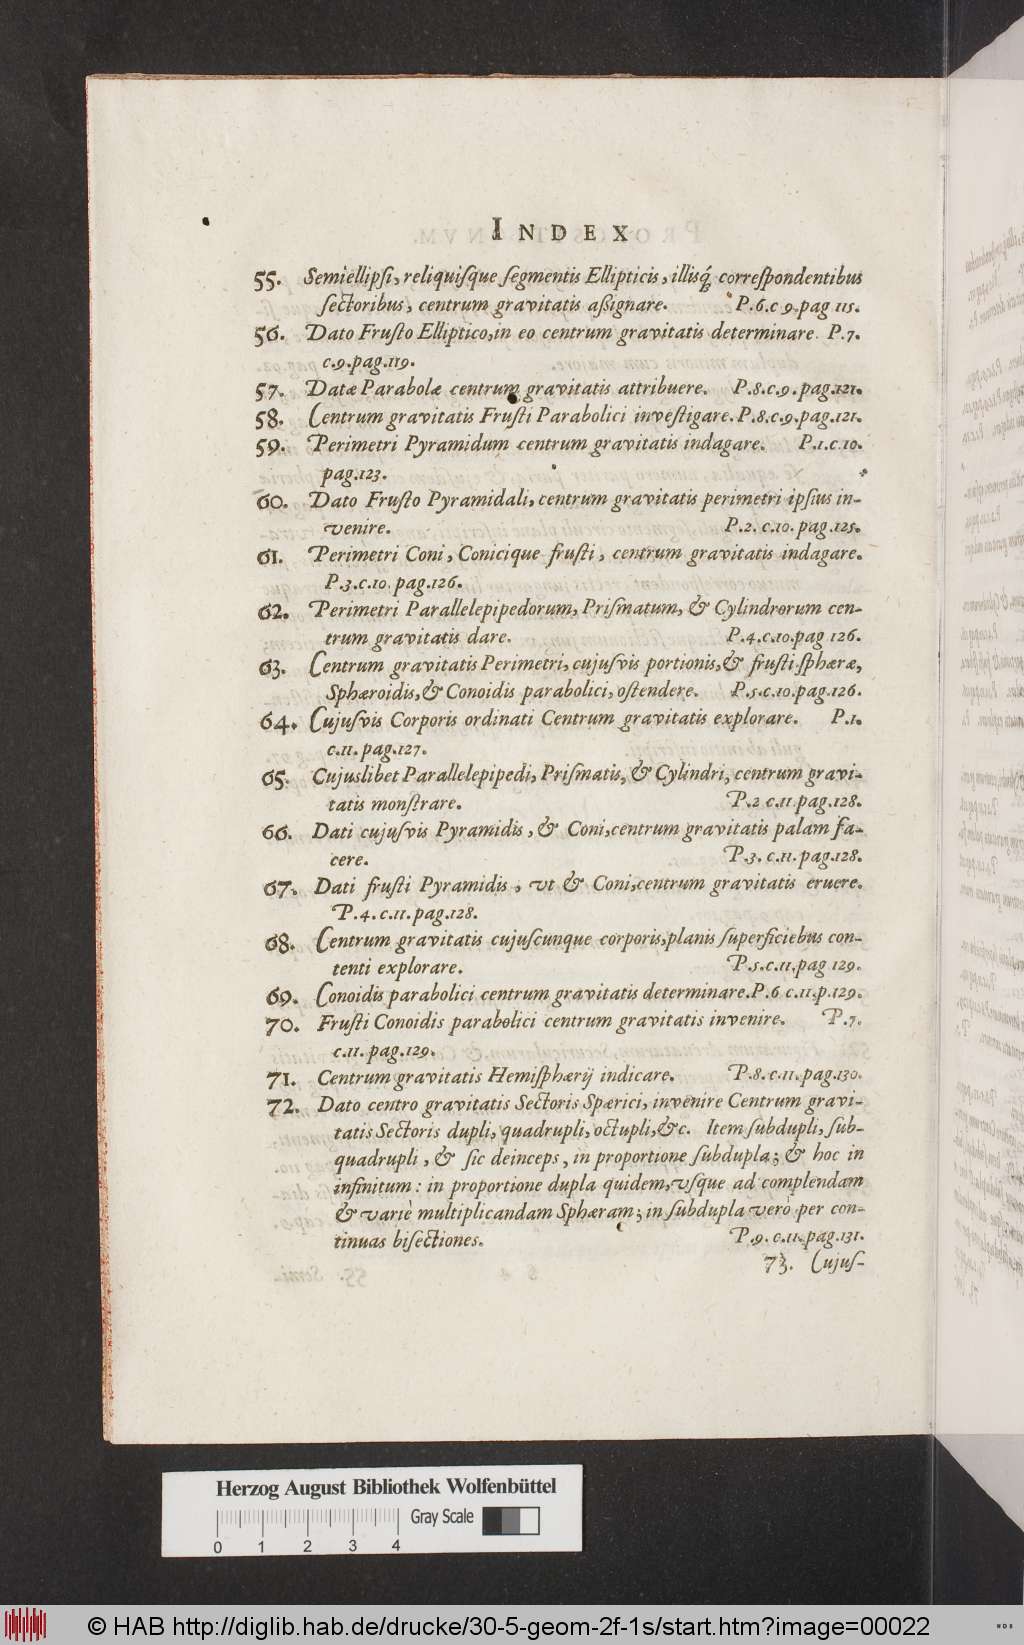 INDEX
55. Semiellipsi, reliquisque segmentis Ellipticis, illisq́; correspondentibus
sectoribus, centrum gravitatis aßignare. P.6.c 9.pag 115.
56. Dato Frusto Elliptico, in eo centrum gravitatis determinare. P.7.
c.9.pag.119.
57. Datæ Parabolæ centrum gravitatis attribuere. P.8.c.9.pag.121.
58. Centrum gravitatis Frusti Parabolici investigare. P.8.c.9.pag.121.
59. Perimetri Pyramidum centrum gravitatis indagare. P.1.c.10.
pag.123.
60. Dato Frusto Pyramidali, centrum gravitatis perimetri ipsius in-
venire. P.2. c.10. pag.125.
61. Perimetri Coni, Conicique frusti, centrum gravitatis indagare.
P.3.c.10. pag.126.
62. Perimetri Parallelepipedorum, Prismatum, & Cylindrorum cen-
trum gravitatis dare. P.4.c.10.pag 126.
63. Centrum gravitatis Perimetri, cujusvis portionis, & frusti sphæræ,
Sphæroidis, & Conoidis parabolici, ostendere. P.5.c.10.pag.126.
64. Cujusvis Corporis ordinati Centrum gravitatis explorare. P.1.
c.11. pag.127.
65. Cujuslibet Parallelepipedi, Prismatis, & Cylindri, centrum gravi-
tatis monstrare. P.2 c.11 pag.128.
66. Dati cujusvis Pyramidis, & Coni, centrum gravitatis palam fa-
cere. P.3. c.11. pag.128.
67. Dati frusti Pyramidis, vt & Coni, centrum gravitatis eruere.
P.4. c.11. pag.128.
68. Centrum gravitatis cujuscunque corporis, planis superficiebus con-
tenti explorare. P.5.c.11.pag 129.
69. Conoidis parabolici centrum gravitatis determinare. P.6 c.11.p.129.
70. Frusti Conoidis parabolici centrum gravitatis invenire. P.7.
c.11. pag.129.
71. Centrum gravitatis Hemisphærij indicare. P.8. c.11. pag.130.
72. Dato centro gravitatis Sectoris Spærici, invenire Centrum gravi-
tatis Sectoris dupli, quadrupli, octupli, &c. Item subdupli, sub-
quadrupli, & sic deinceps, in proportione subdupla; & hoc in
infinitum: in proportione dupla quidem, vsque ad complendam
& variè multiplicandam Sphæram; in subdupla verò per con-
tinuas bisectiones. P.9. c.11. pag.131.
73. Cujus-
Herzog August Bibliothek Wolfenbüttel
Gray Scale
0 1 2 3 4
© HAB http://diglib.hab.de/drucke/30-5-geom-2f-1s/start.htm?image=00022